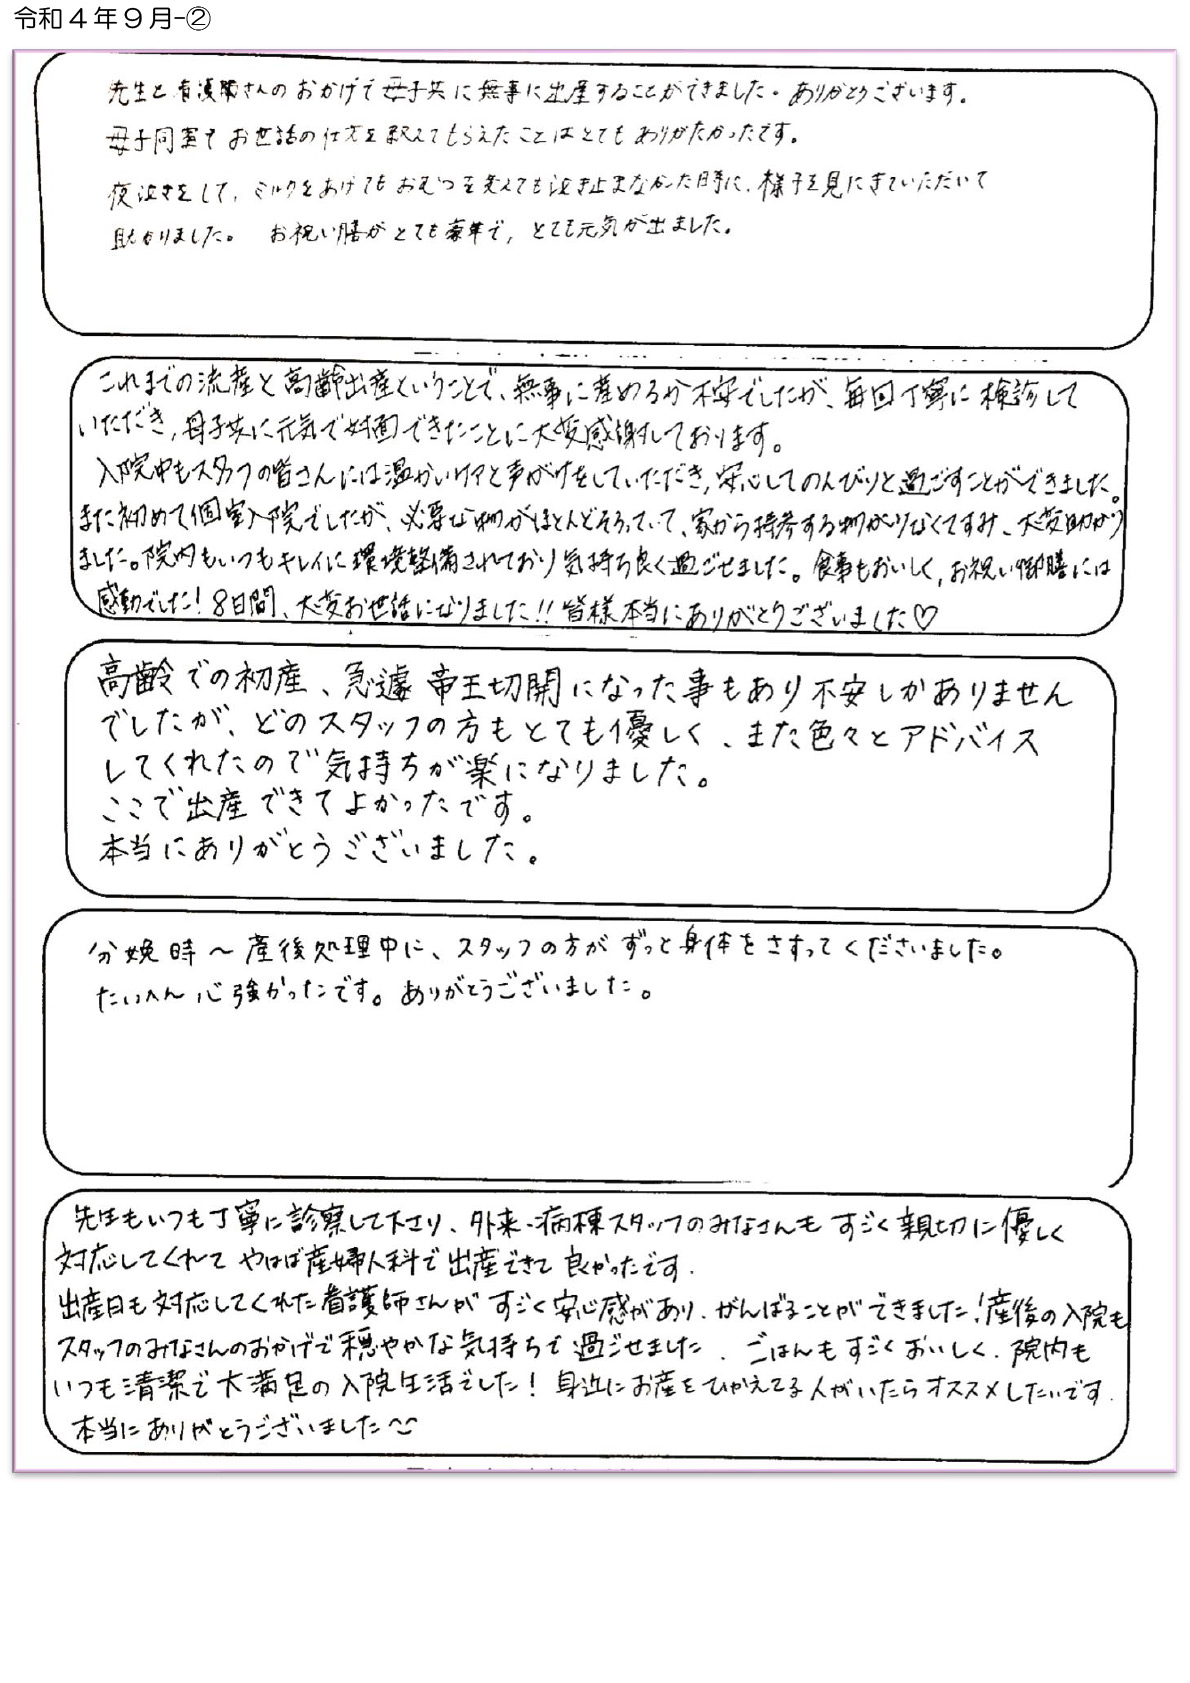 令和４年９月-②
先生と看護師さんのおかげで母子共に無事に出産することができました。ありがとうございます。
母子同室でお世話の仕方を教えてもらえたことはとてもありがたかったです。
夜泣きをして、ミルクをあげてもおむつを変えても泣き止まなかった時に、様子を見にきていただいて
助かりました。 お祝い膳がとても豪華で、とても元気が出ました。
これまでの流産と高齢出産ということで、無事に産めるか不安でしたが、毎回丁寧に検診して
いただき、母子共に元気で対面できたことに大変感謝しております。
入院中もスタッフの皆さんには温かいケアと声がけをしていただき、安心してのんびりと過ごすことができました。
また初めて個室入院でしたが、必要な物がほとんどそろっていて、家から持参する物が少なくてすみ、大変助かり
ました。院内もいつもキレイに環境整備されており気持ち良く過ごせました。食事もおいしく、お祝い御膳には
感動でした！8日間、大変お世話になりました!! 皆様本当にありがとうございました♡
高齢での初産、急遽 帝王切開になった事もあり不安しかありません
でしたが、どのスタッフの方もとても優しく、また色々とアドバイス
してくれたので気持ちが楽になりました。
ここで出産できてよかったです。
本当にありがとうございました。
分娩時〜産後処理中に、スタッフの方がずっと身体をさすってくださいました。
たいへん心強かったです。ありがとうございました。
先生もいつも丁寧に診察して下さり、外来・病棟スタッフのみなさんも すごく親切に優しく
対応してくれて やはば産婦人科で出産できて良かったです.
出産日も対応してくれた看護師さんが すごく安心感があり、がんばることができました！産後の入院も
スタッフのみなさんのおかげで穏やかな気持ちで過ごせました． ごはんもすごくおいしく、院内も
いつも清潔で大満足の入院生活でした！ 身近にお産をひかえてる人がいたらオススメしたいです．
本当にありがとうございました